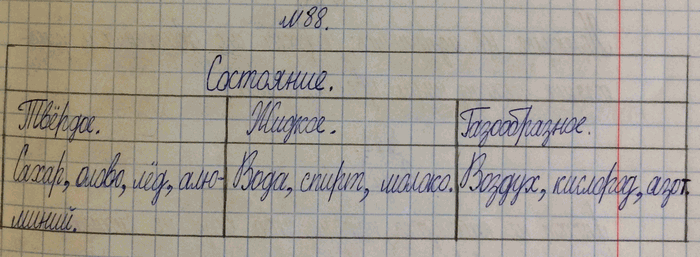 №88.
Состояние.
Твёрдое. Жидкое. Газообразное.
Сахар, олово, лёд, алю- Вода, спирт, молоко. Воздух, кислород, азот.
миний.